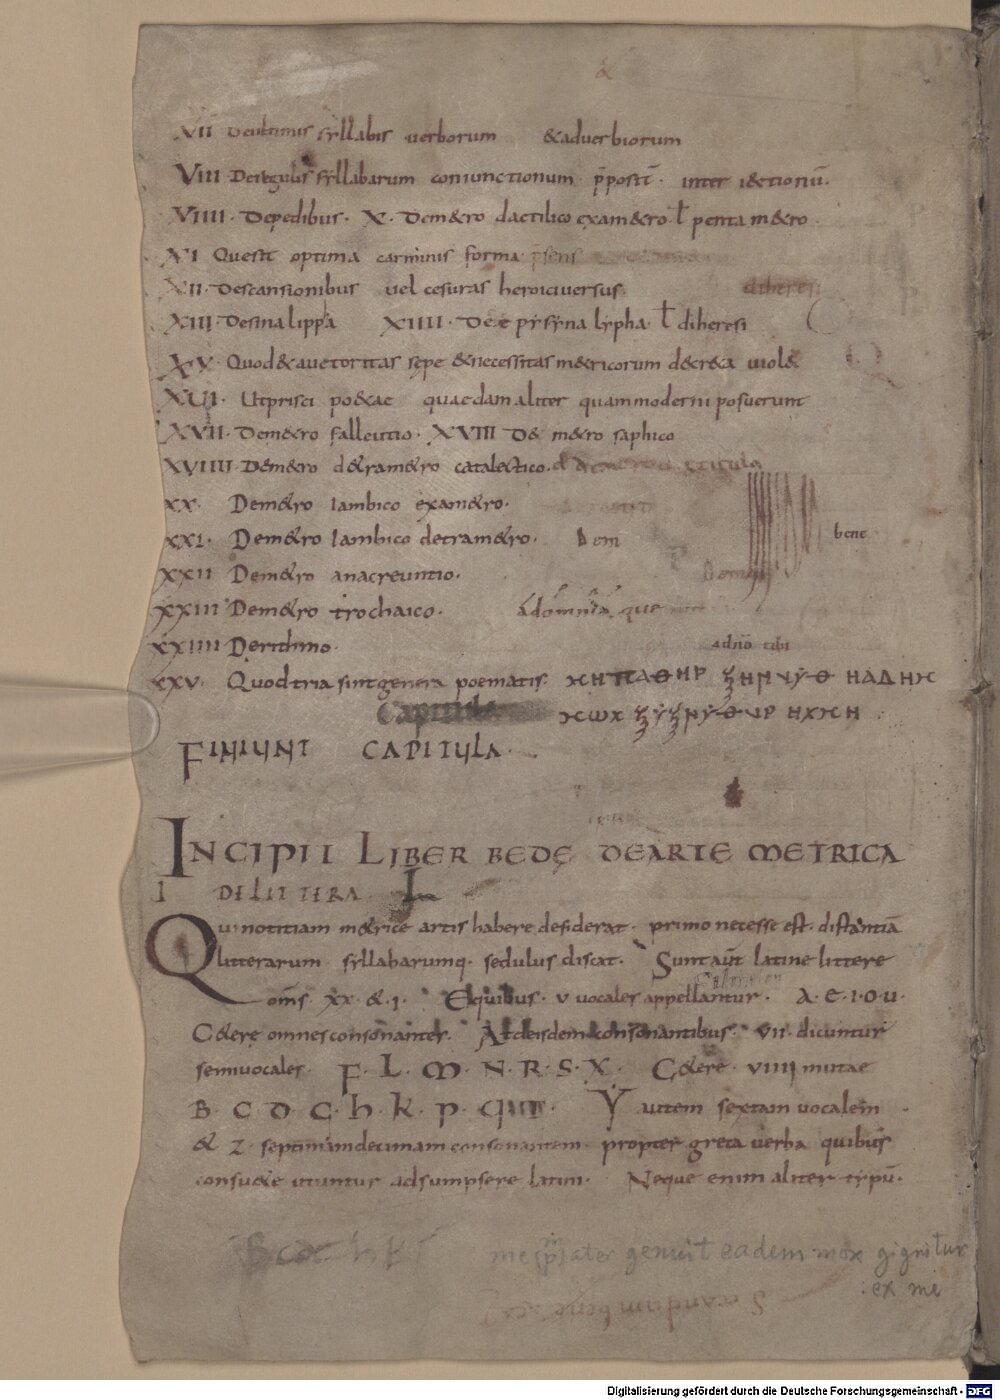 VII Deultimis syllabis uerborum &aduerbiorum
VIII Deregulis syllabarum coniunctionum p̄positī· inter iectionū·
VIIII· Depedibus· X· Dem&ro dactilico exam&ro ƚ pentam&ro
XI Quesit optima carminis forma p̄sens
XII· Descansionibus uel cesuras heroiciuersus diheresi
XIII· Desinalippa XIIII· Deepysynalypha ƚ diheresi
XV Quod&auctoritas sepe &necessitas m&ricorum d&cr&a uiol&
XVI· Utprisci po&ae quaedamaliter quammoderni posuerunt
XVII· Dem&ro falleutio· XVIII De m&ro saphico
XVIIII Dem&ro d&ram&ro catalectico·
XX· Dem&ro iambico exam&ro·
XXI· Dem&ro iambico detram&ro· Dem bene
XXII Dem&ro anacreuntio·
XXIII Dem&ro trochaico· ádomnia que
XXIIII Derithmo· adnō tibi
XXV· Quodtria sintgenera poematis·
Capitula
FINIUNT CAPITULA·
INCIPIT LIBER BEDĘ DEARTE METRICA
I DELITTERA
Quinotitiam m&rice artis habere desiderat· primo necesse est· distantiā
litterarum syllabarumq· sedulus discat· Suntaūt latine littere
oms̄ xx· &·i· Equibus· v uocales appellantur· A·E·I·O·U·
C&erę omnesconsonantes· Atdeisdemconsonantibus· VII· dicuntur
semiuocales· F·L·M·N·R·S·X· C&ere· VIIII mutae
B·C·D·G·h·K·P·Q·T· Y autem sextam uocalem
& Z· septimamdecimam consonantem propter greca uerba quibus
consu&e utuntur adsumpsere latini· Neque enim aliter typū·
me mater genuit eadem mox gignitur
ex me